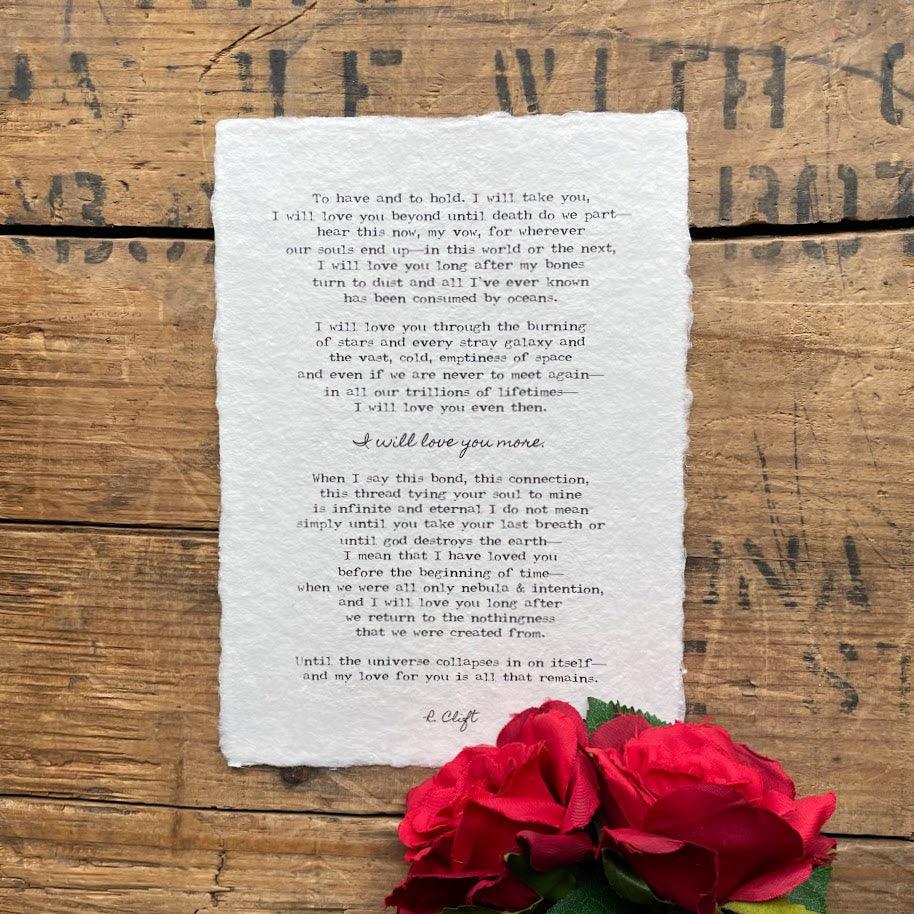 WITH
1307
To have and to hold. I will take you,
I will love you beyond until death do we part—
hear this now, my vow, for wherever
our souls end up—in this world or the next,
I will love you long after my bones
turn to dust and all I've ever known
has been consumed by oceans.
I will love you through the burning
of stars and every stray galaxy and
the vast, cold, emptiness of space
and even if we are never to meet again—
in all our trillions of lifetimes—
I will love you even then.
I will love you more.
When I say this bond, this connection,
this thread tying your soul to mine
is infinite and eternal I do not mean
simply until you take your last breath or
until god destroys the earth—
I mean that I have loved you
before the beginning of time—
when we were all only nebula & intention,
and I will love you long after
we return to the nothingness
that we were created from.
Until the universe collapses in on itself—
and my love for you is all that remains.
R. Clift